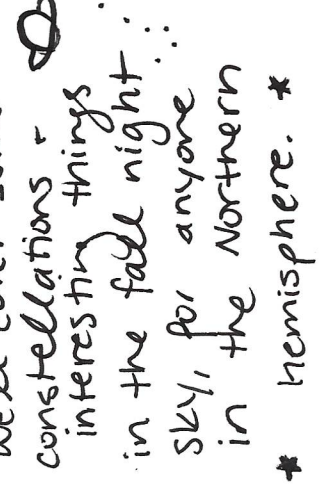 constellations +
interesting things
in the fall night
sky, for anyone
in the Northern
hemisphere.